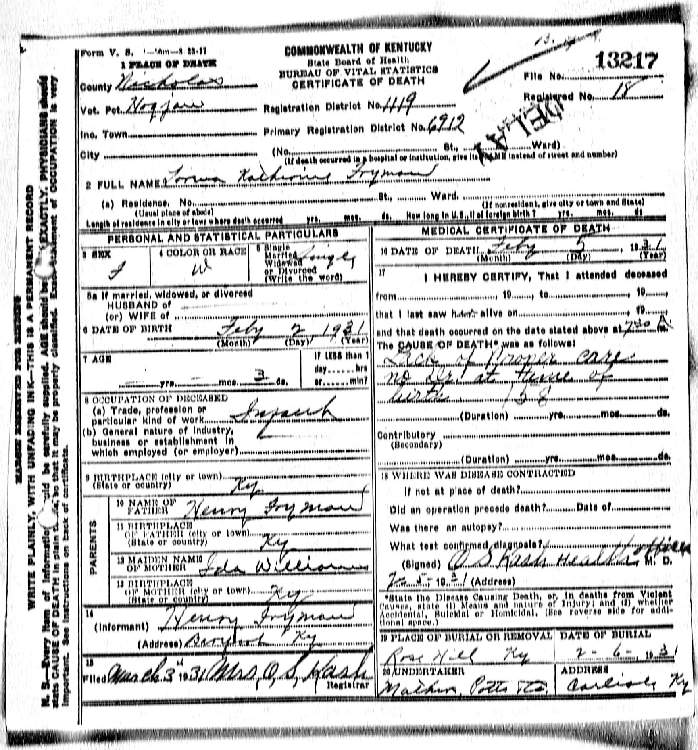 Form V. S.
COMMONWEALTH OF KENTUCKY
State Board of Health
BUREAU OF VITAL STATISTICS
CERTIFICATE OF DEATH
1 PLACE OF DEATH
County Nicholas
File No. 13217
Registered No. 18
Vot. Pct.
Registration District No. 1119
Inc. Town
Primary Registration District No. 6912
City
(No. St., Ward)
(If death occurred in a hospital or institution, give its NAME instead of street and number)
DELAY
2 FULL NAME Katherine Fryman
(a) Residence. No. St., Ward.
(Usual place of abode) (If nonresident, give city or town and State)
Length of residence in city or town where death occurred yrs. mos. ds. How long in U.S., if of foreign birth? yrs. mos. ds
PERSONAL AND STATISTICAL PARTICULARS
3 SEX
F
4 COLOR OR RACE
W
5 Single
Married
Widowed
or Divorced
(Write the word)
Single
5a If married, widowed, or divorced
HUSBAND of
(or) WIFE of
6 DATE OF BIRTH Feby 2 1931
(Month) (Day) (Year)
7 AGE
yrs. mos. 3 ds.
IF LESS than 1
day hrs
or min?
8 OCCUPATION OF DECEASED
(a) Trade, profession or
particular kind of work Infant
(b) General nature of industry,
business or establishment in
which employed (or employer)
9 BIRTHPLACE (city or town)
(State or country) Ky
PARENTS
10 NAME OF
FATHER Henry Fryman
11 BIRTHPLACE
OF FATHER (city or town)
(State or country) Ky
12 MAIDEN NAME
OF MOTHER Ida Williams
13 BIRTHPLACE
OF MOTHER (city or town)
(State or country) Ky
14
(Informant) Henry Fryman
(Address) Ky
15
Filed March 3 1931 Mrs. O. S. Kash
Registrar
MEDICAL CERTIFICATE OF DEATH
16 DATE OF DEATH Feby 5 1931
(Month) (Day) (Year)
17
I HEREBY CERTIFY, That I attended deceased
from 19 to 19
that I last saw h alive on 19
and that death occurred on the date stated above at 7:30
The CAUSE OF DEATH* was as follows:
Lack of Proper care
no Dr. at time of
birth 158
(Duration) yrs. mos. ds.
Contributory
(Secondary)
(Duration) yrs. mos. ds.
18 WHERE WAS DISEASE CONTRACTED
If not at place of death?
Did an operation precede death? Date of
Was there an autopsy?
What test confirmed diagnosis?
(Signed) O S Kash Health officer M. D.
2-5-1931 (Address)
*State the Disease Causing Death, or, in deaths from Violent
Causes, state (1) Means and nature of Injury; and (2), whether
Accidental, Suicidal or Homicidal. (See reverse side for addi-
tional space.)
19 PLACE OF BURIAL OR REMOVAL
Rose Hill Ky
DATE OF BURIAL
2-6-1931
20 UNDERTAKER
Mathers, Potts
ADDRESS
Carlisle Ky
MARGIN RESERVED FOR BINDING
WRITE PLAINLY, WITH UNFADING INK—THIS IS A PERMANENT RECORD